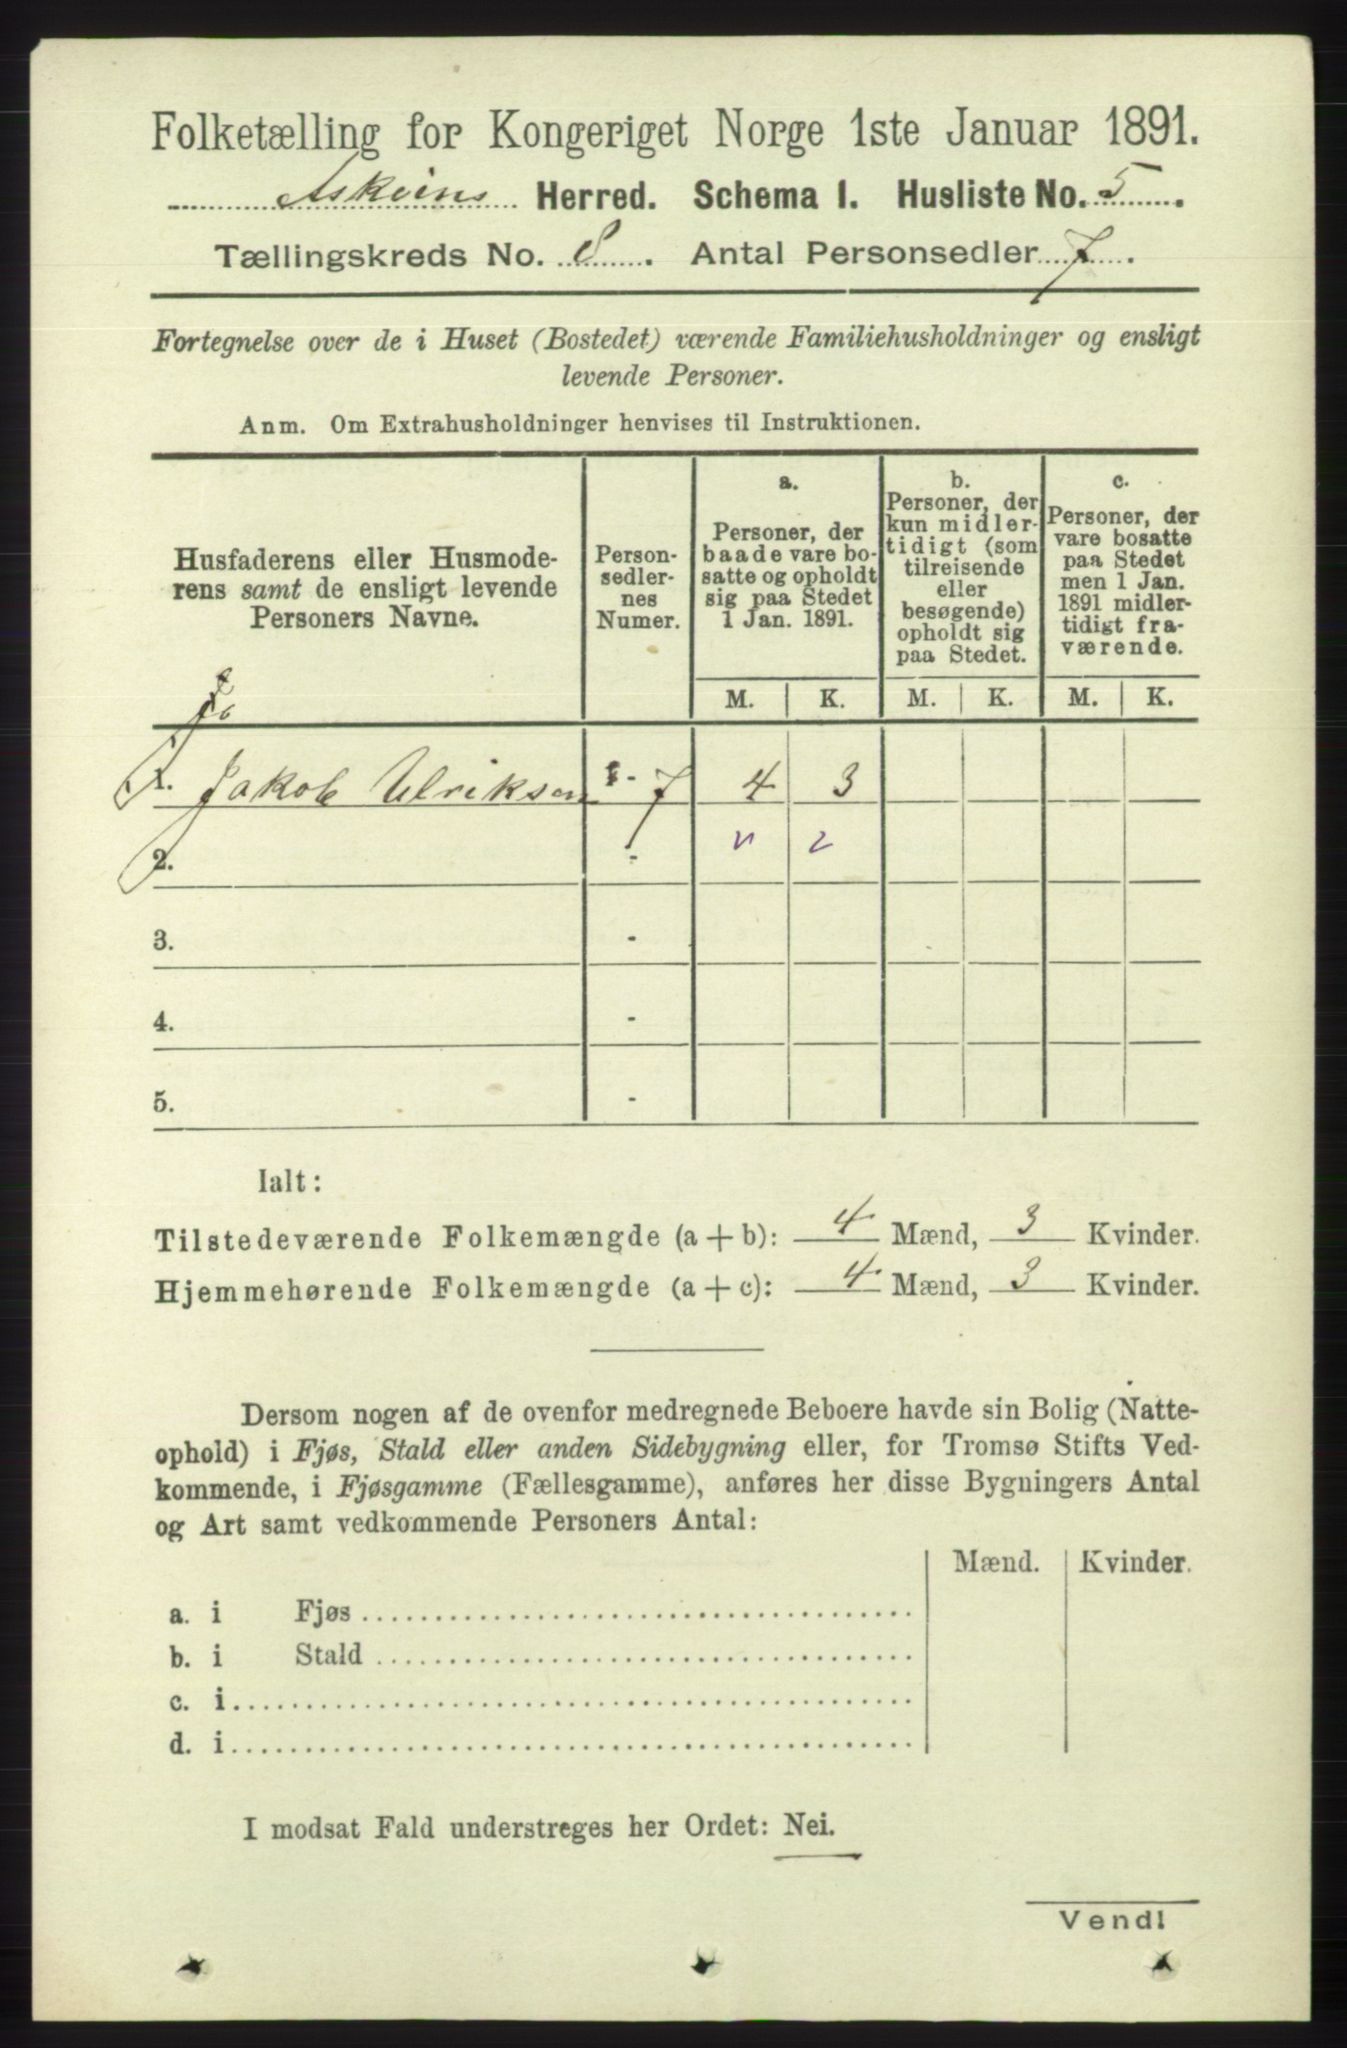 Folketælling for Kongeriget Norge 1ste Januar 1891.
Askvins Herred. Schema I. Husliste No. 5.
Tællingskreds No. 8. Antal Personsedler 7.
Fortegnelse over de i Huset (Bostedet) værende Familiehusholdninger og ensligt
levende Personer.
Anm. Om Extrahusholdninger henvises til Instruktionen.
Husfaderens eller Husmode-
rens samt de ensligt levende
Personers Navne.
Person-
sedler-
nes
Numer.
a.
Personer, der
baade vare bo-
satte og opholdt
sig paa Stedet
1 Jan. 1891.
b.
Personer, der
kun midler-
tidigt (som
tilreisende
eller
besøgende)
opholdt sig
paa Stedet.
c.
Personer, der
vare bosatte
paa Stedet
men 1 Jan.
1891 midler-
tidigt fra-
værende.
M. K. M. K. M. K.
Jo
1. Jakob Ulriksen 1 - 7 4 3
2. - v 2
3. -
4. -
5. -
Ialt:
Tilstedeværende Folkemængde (a + b): 4 Mænd, 3 Kvinder.
Hjemmehørende Folkemængde (a + c): 4 Mænd, 3 Kvinder.
Dersom nogen af de ovenfor medregnede Beboere havde sin Bolig (Natte-
ophold) i Fjøs, Stald eller anden Sidebygning eller, for Tromsø Stifts Ved-
kommende, i Fjøsgamme (Fællesgamme), anføres her disse Bygningers Antal
og Art samt vedkommende Personers Antal:
Mænd. Kvinder.
a. i Fjøs
b. i Stald
c. i
d. i
I modsat Fald understreges her Ordet: Nei.
Vend!